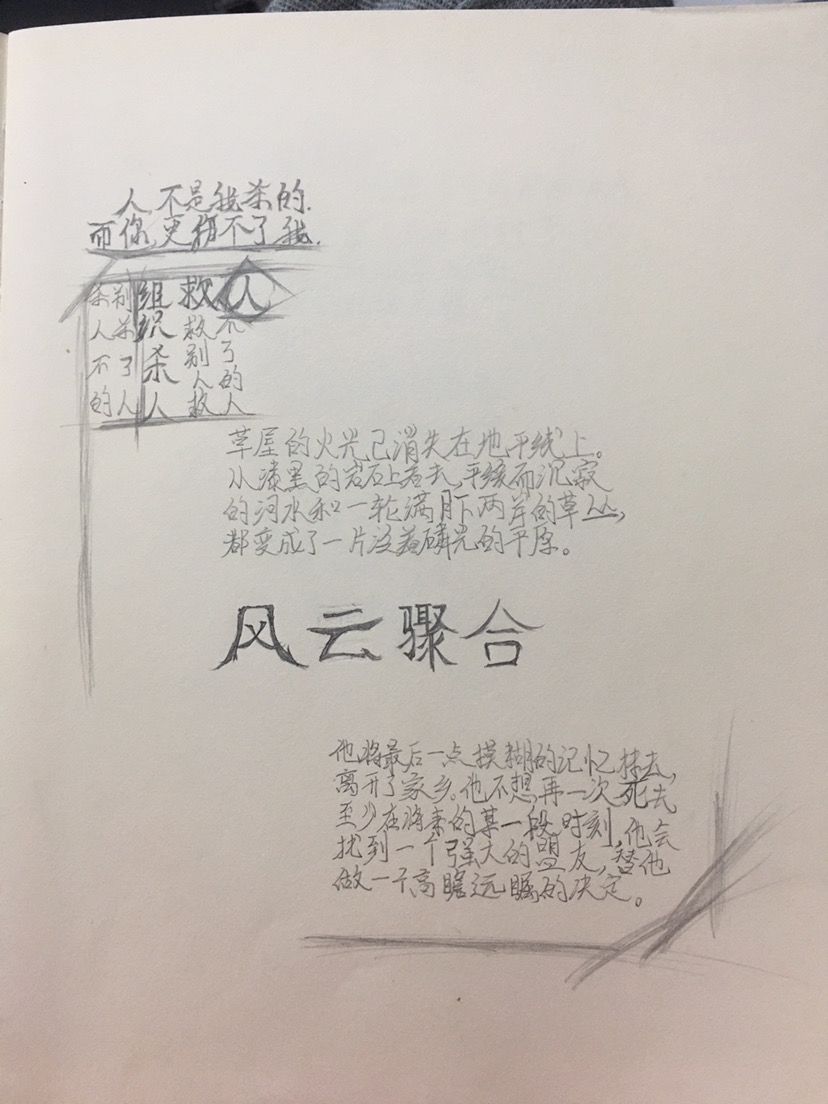 人,不是我杀的.
而你,更救不了我.
杀别
人杀
不了
的人
组织杀人
救人
救不
别了
人的
救人
草屋的火光已消失在地平线上。
从漆黑的岩石上看去,平缓而沉寂
的河水和一轮满月下两岸的草丛,
都变成了一片泛着磷光的平原。
风云骤合
他将最后一点模糊的记忆抹去,
离开了家乡。他不想再一次死去
至少在将来的某一段时刻,他会
找到一个强大的盟友,替他
做一个高瞻远瞩的决定。